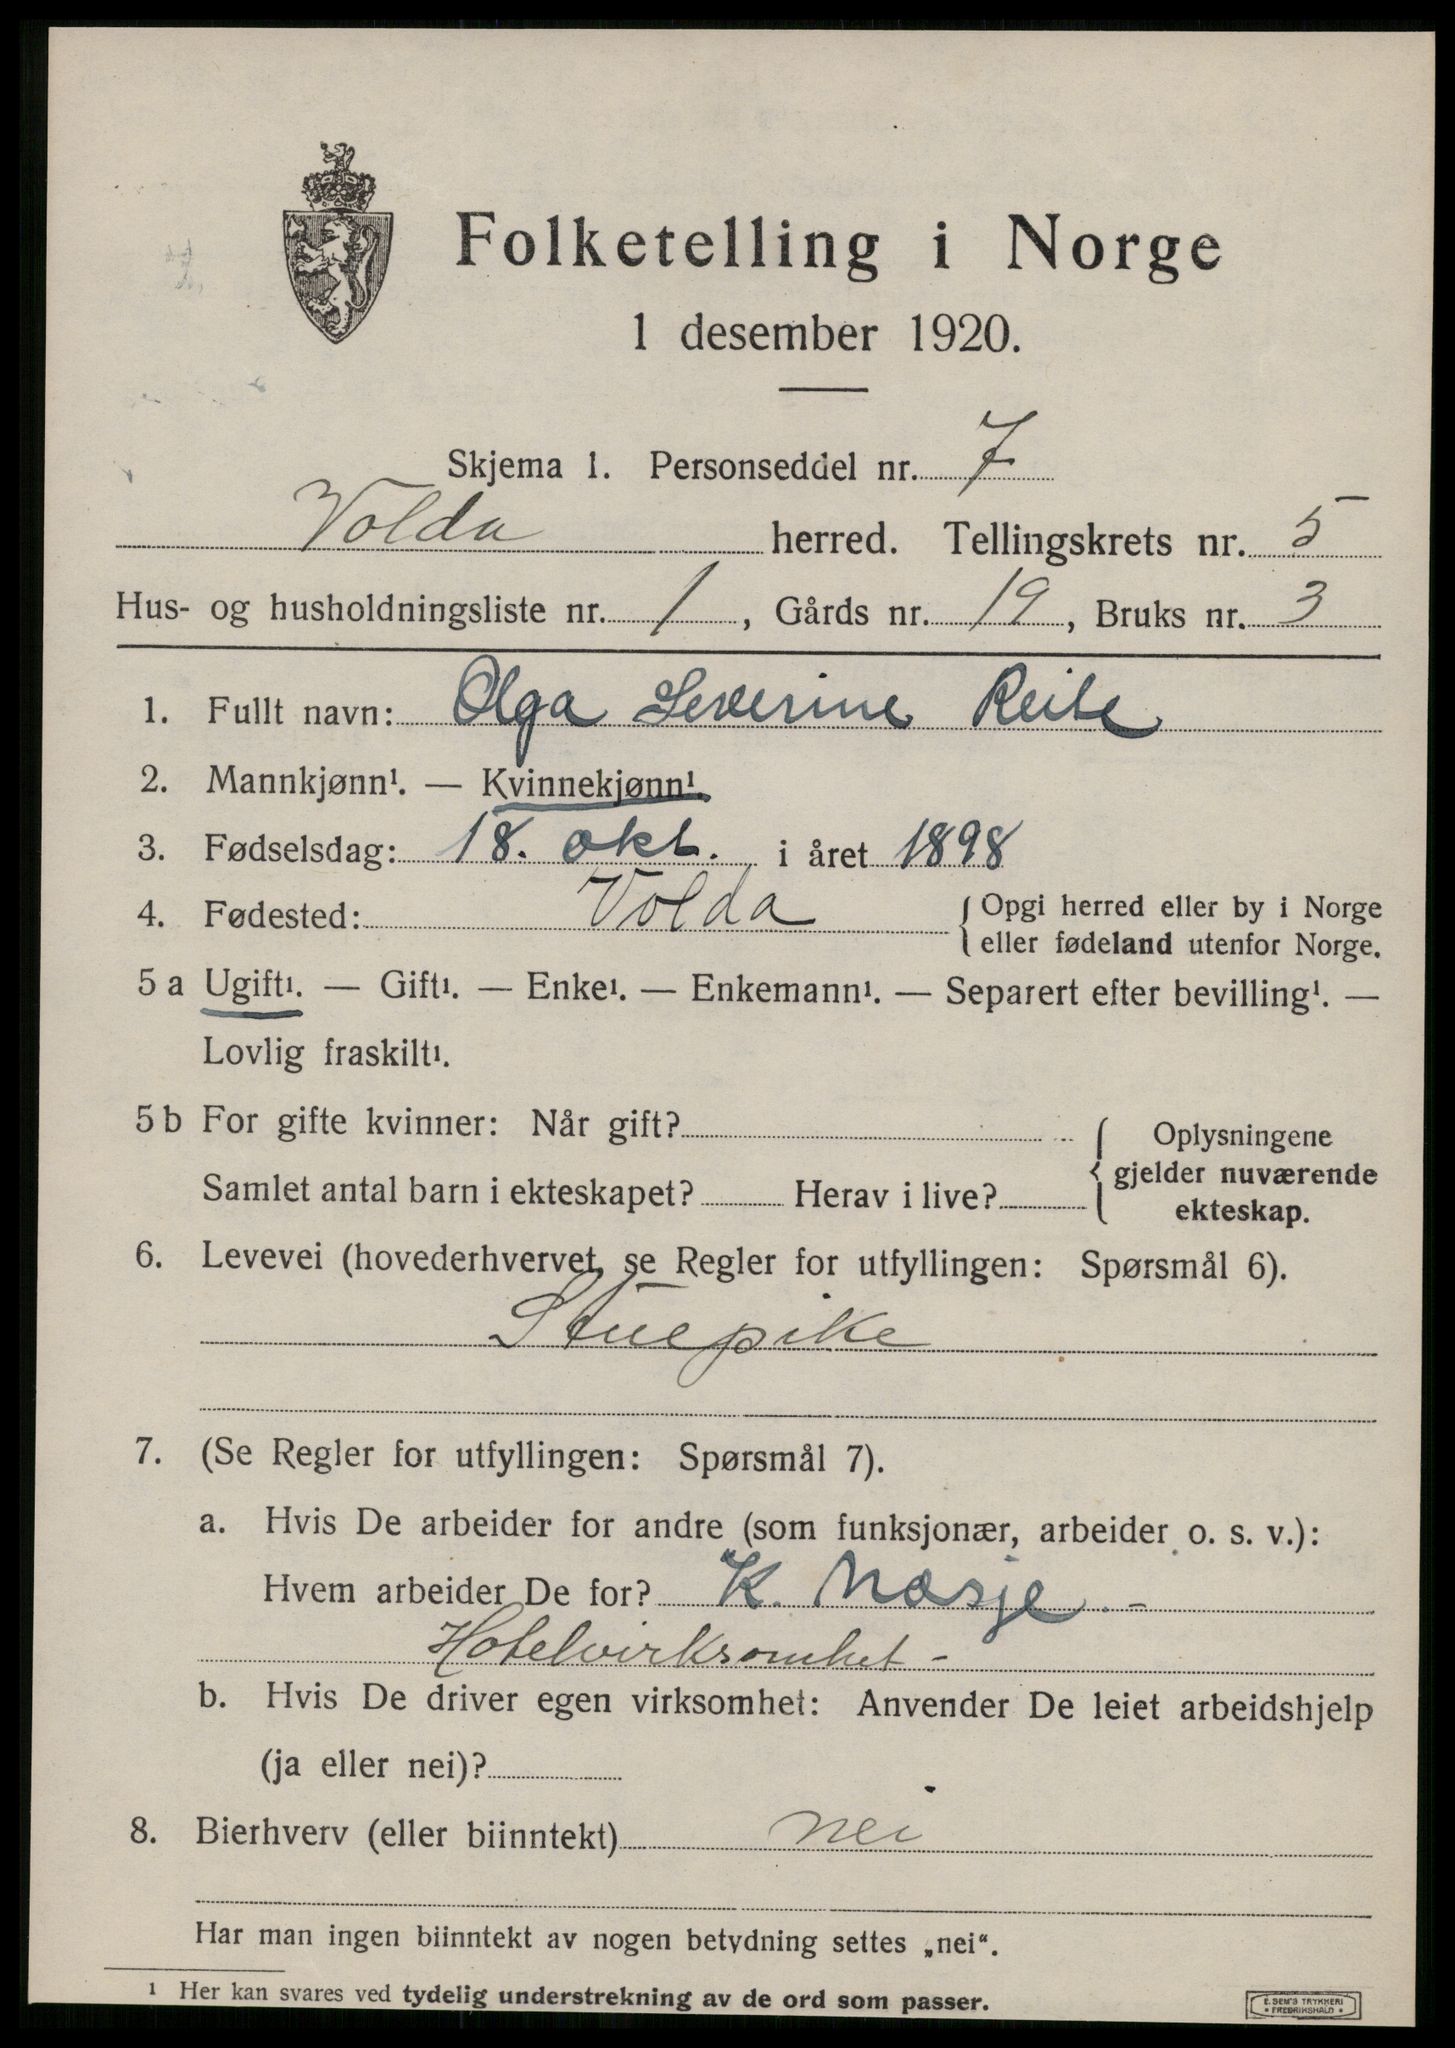 Folketelling i Norge
1 desember 1920.
Skjema 1. Personseddel nr. 7
Volda herred. Tellingskrets nr. 5
Hus- og husholdningsliste nr. 1, Gårds nr. 19, Bruks nr. 3
1. Fullt navn: Olga Severine Reite
2. Mannkjønn¹. — Kvinnekjønn¹.
3. Fødselsdag: 18. okt. i året 1898
4. Fødested: Volda { Opgi herred eller by i Norge
eller fødeland utenfor Norge.
5 a Ugift¹. — Gift¹. — Enke¹. — Enkemann¹. — Separert efter bevilling¹. —
Lovlig fraskilt¹.
5 b For gifte kvinner: Når gift? { Oplysningene
gjelder nuværende
Samlet antal barn i ekteskapet? Herav i live?
ekteskap.
6. Levevei (hovederhvervet, se Regler for utfyllingen: Spørsmål 6).
Stuepike
7. (Se Regler for utfyllingen: Spørsmål 7).
a. Hvis De arbeider for andre (som funksjonær, arbeider o. s. v.):
Hvem arbeider De for? K. Næsje. -
Hotelvirksomhet -
b. Hvis De driver egen virksomhet: Anvender De leiet arbeidshjelp
(ja eller nei)?
8. Bierhverv (eller biinntekt) nei
Har man ingen biinntekt av nogen betydning settes „nei“.
¹ Her kan svares ved tydelig understrekning av de ord som passer.
E. SEM'S TRYKKERI
* FREDRIKSHALD *